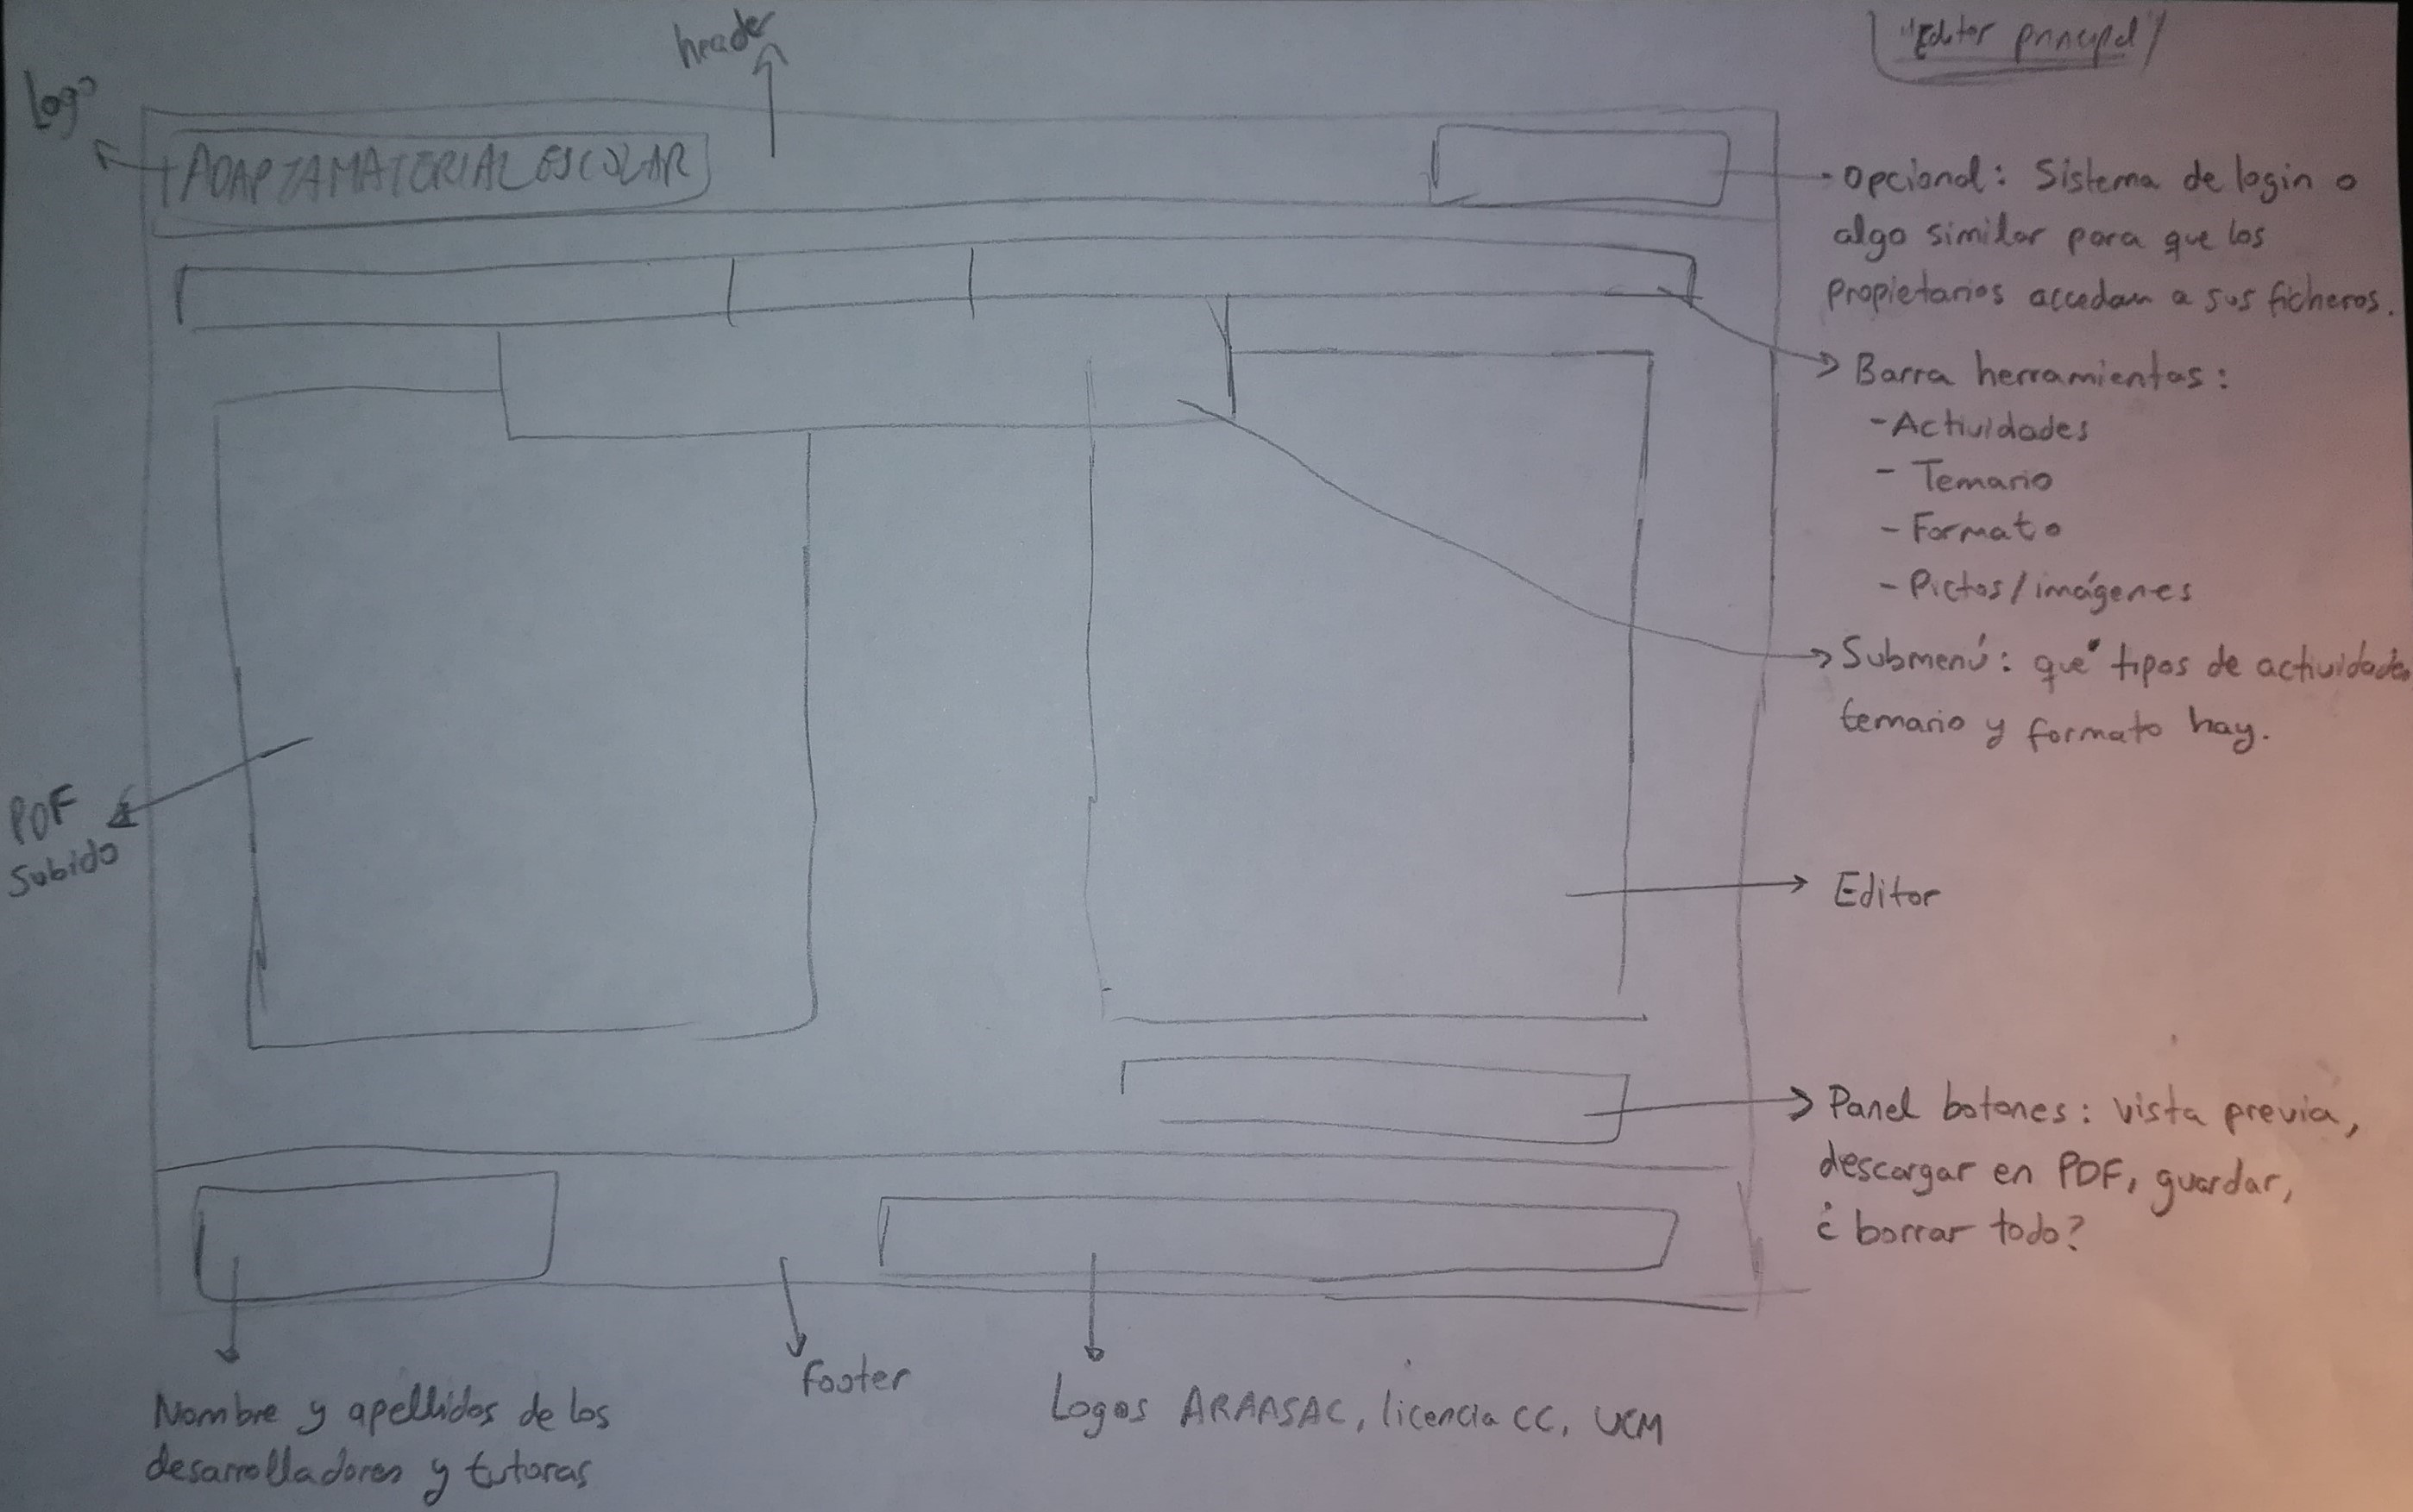 header
"Editor principal"
Logo
ADAPTAMATERIALESCOLAR
Opcional: Sistema de login o
algo similar para que los
propietarios accedan a sus ficheros.
Barra herramientas:
- Actividades
- Temario
- Formato
- Pictos/imágenes
Submenú: qué tipos de actividades
temario y formato hay.
PDF
subido
Editor
Panel botones: vista previa,
descargar en PDF, guardar,
¿borrar todo?
footer
Nombre y apellidos de los
desarrolladores y tutoras
Logos ARAASAC, licencia CC, UCM